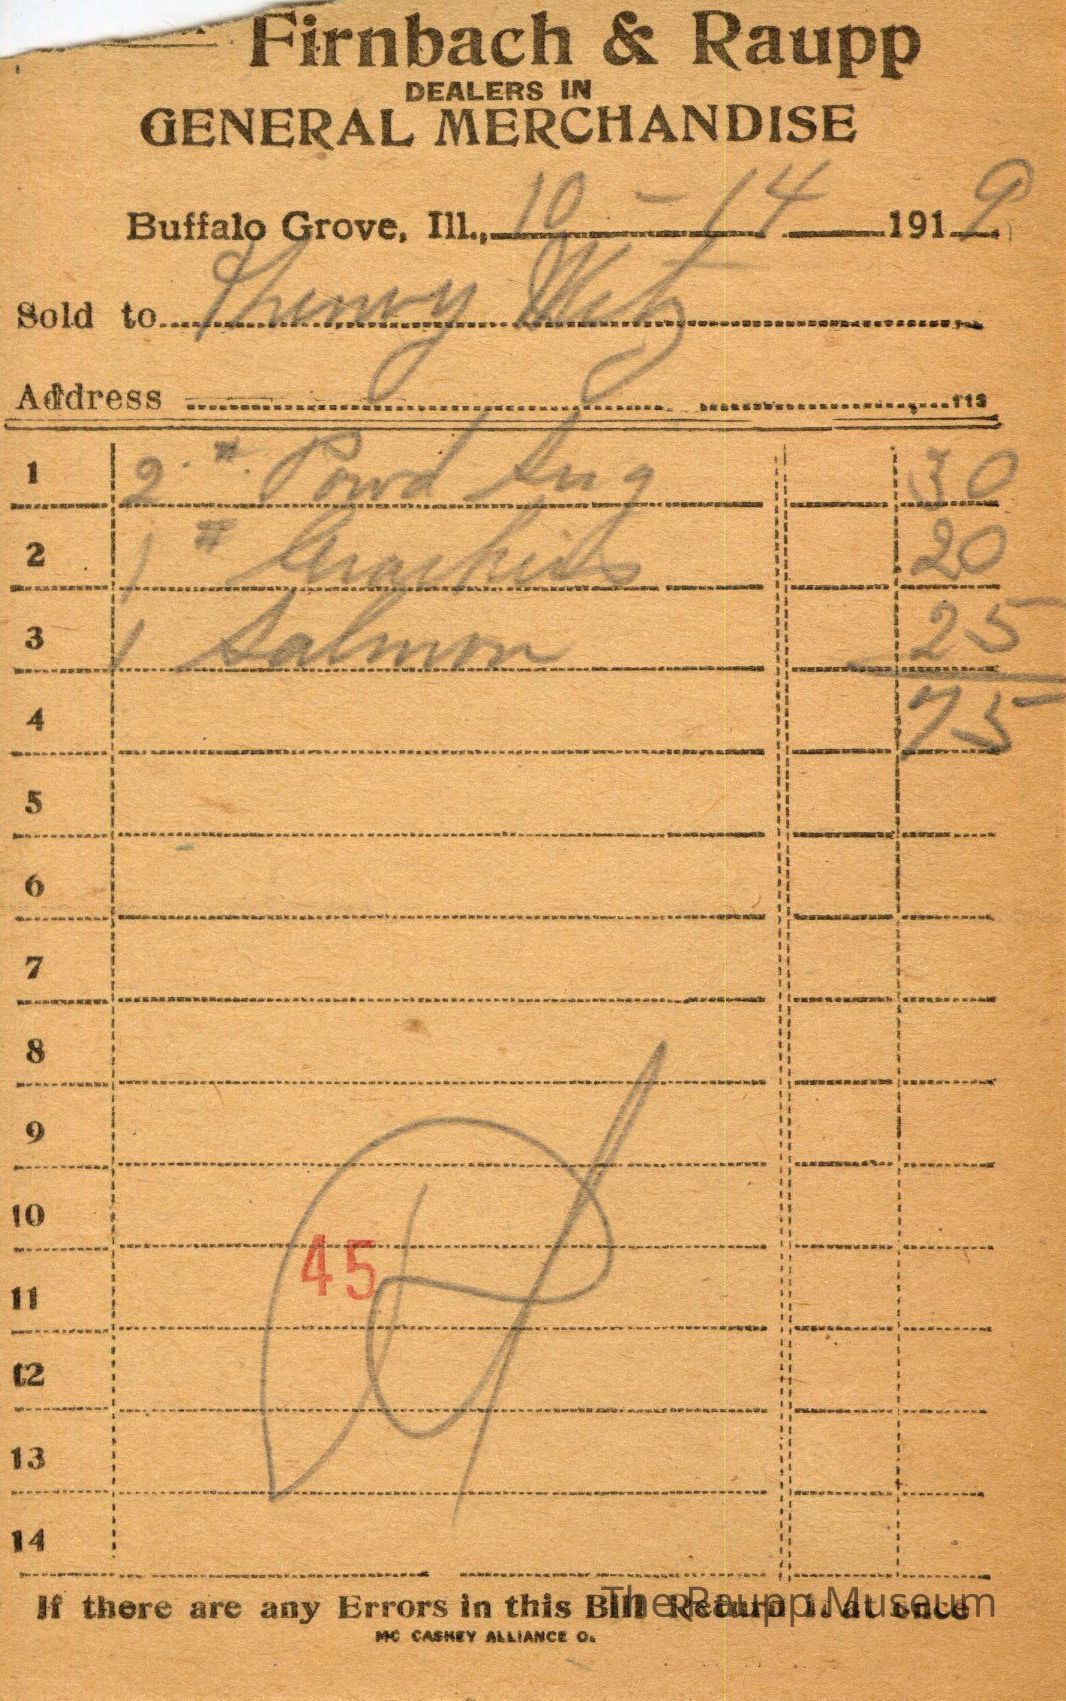 Firnbach & Raupp
DEALERS IN
GENERAL MERCHANDISE
Buffalo Grove, Ill., 10 - 14 1919
Sold to Henry Metz
Address 113
1 2 # Powd Sug 30
2 1 # Crackers 20
3 1 Salmon 25
4 75
5
6
7
8
9
10
45
11
12
13
14
If there are any Errors in this Bill Return it at once
The Raupp Museum
MC CASKEY ALLIANCE O.